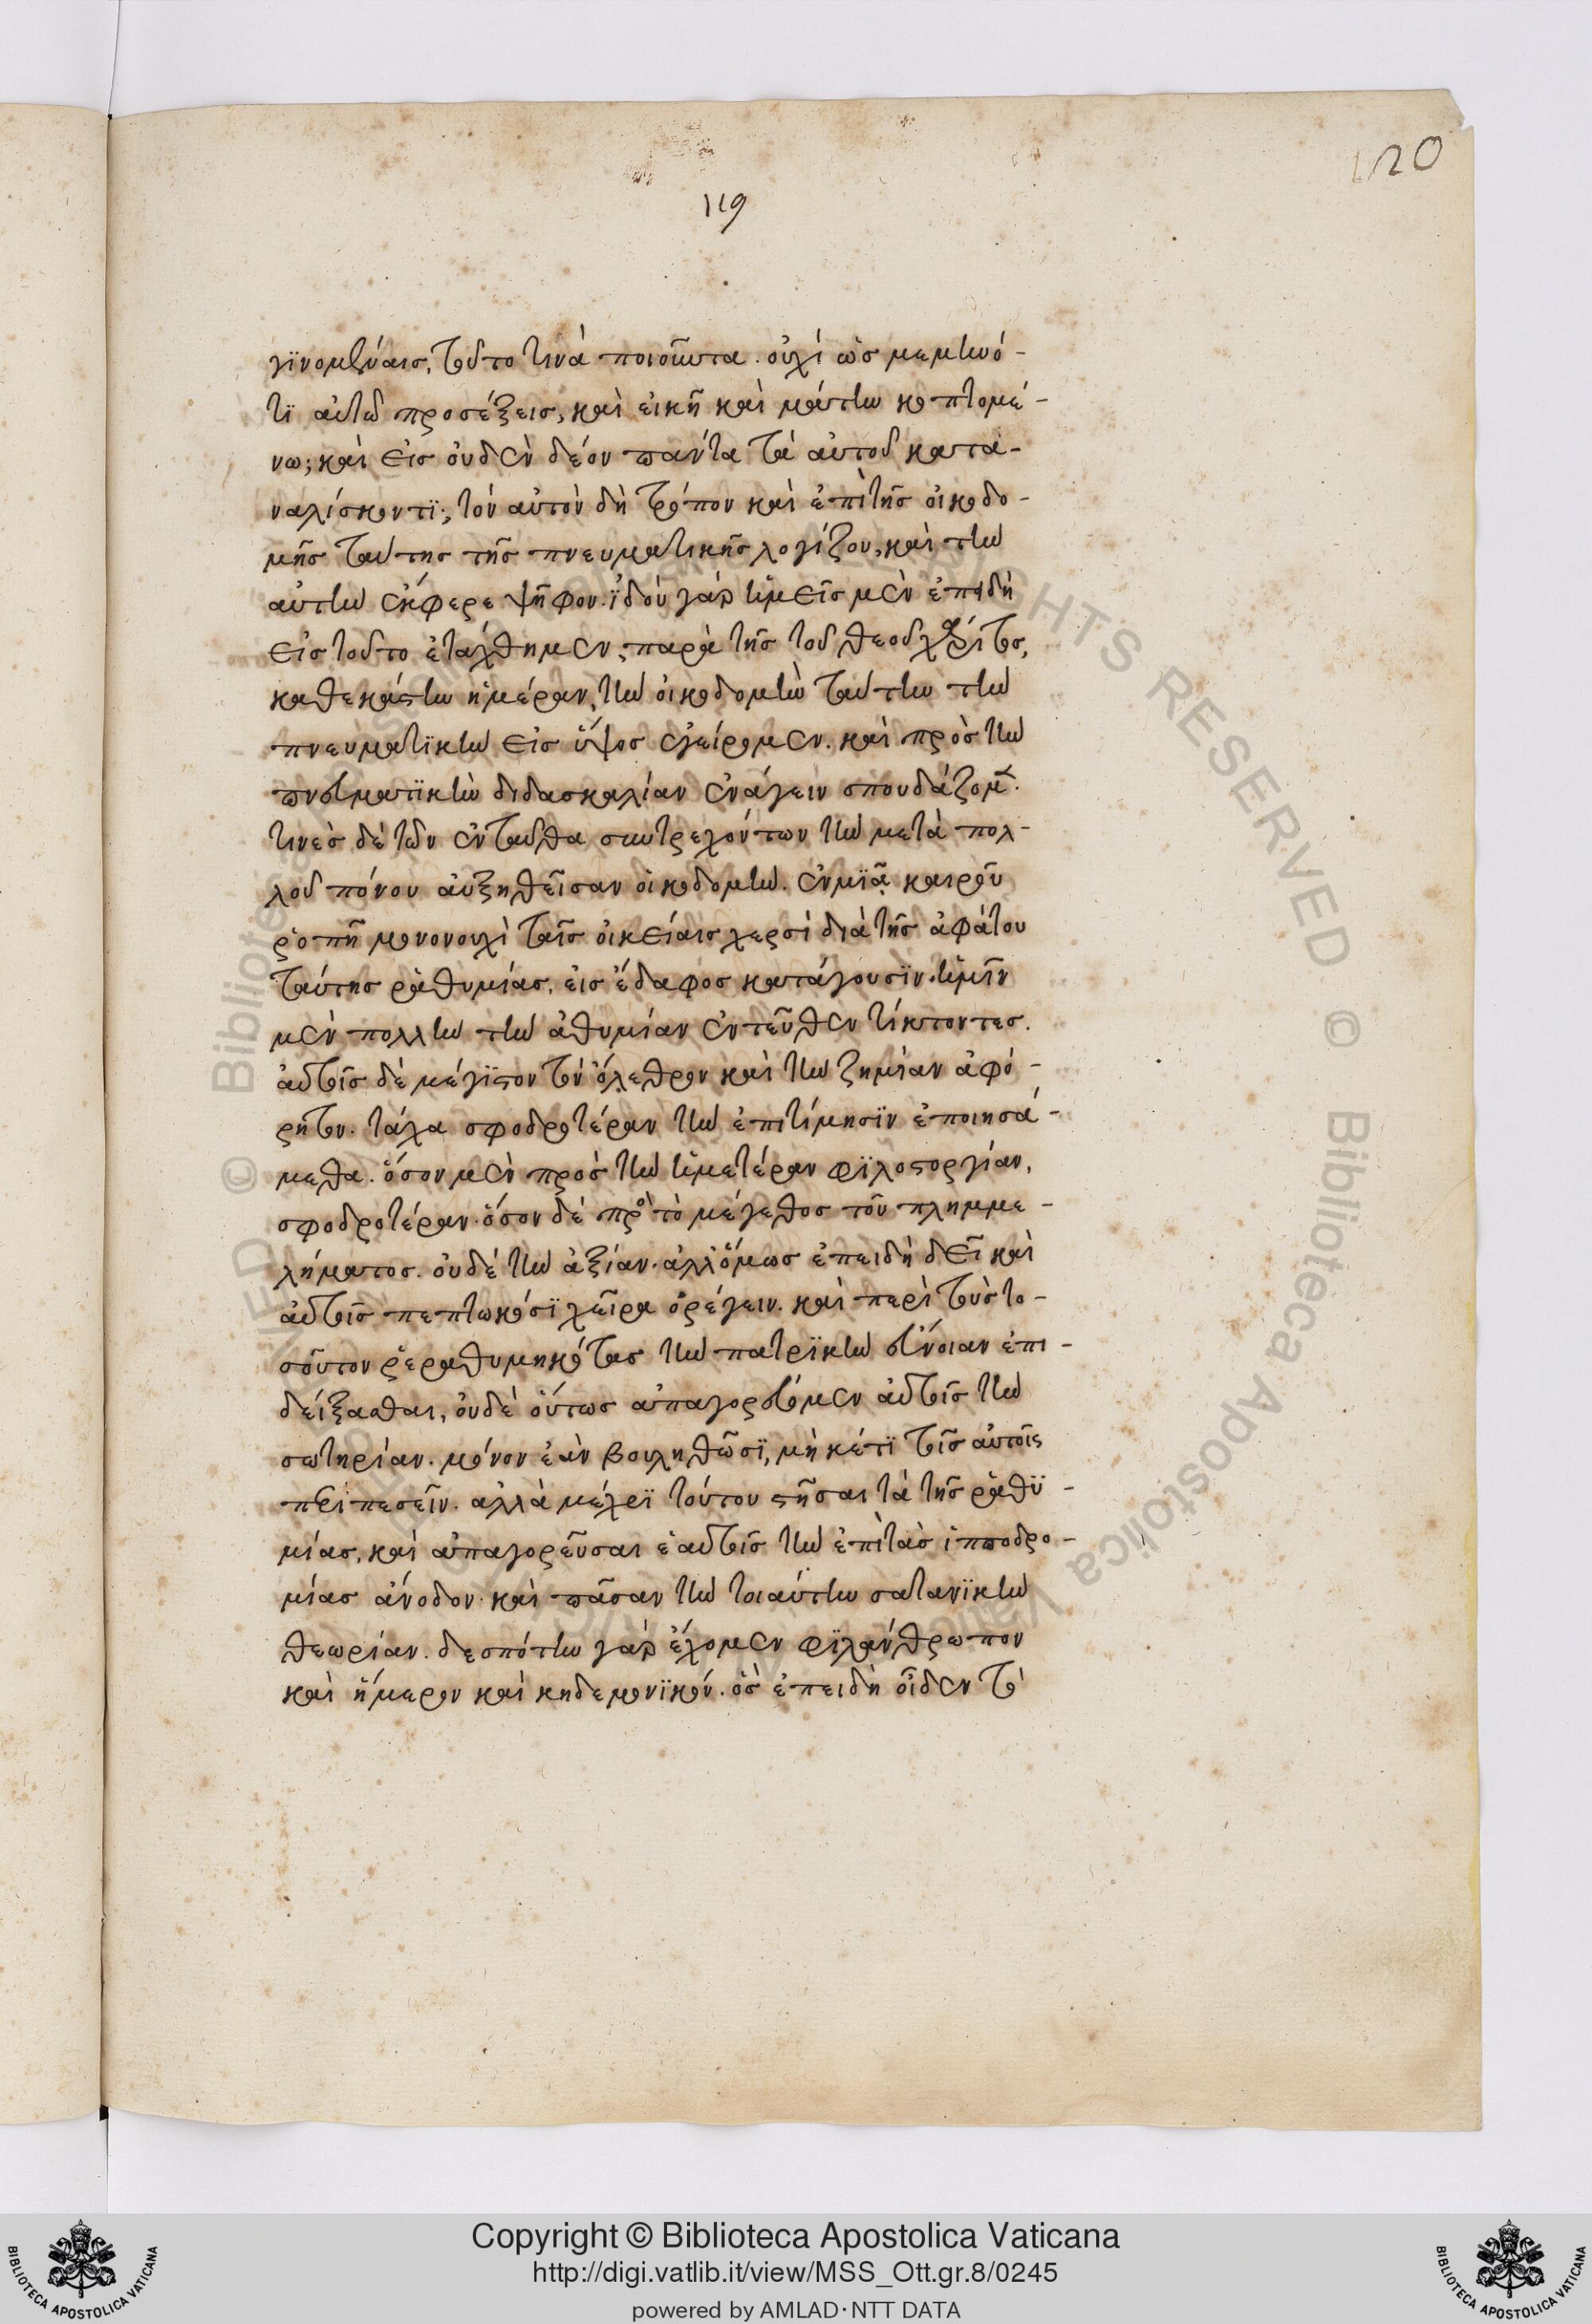 120
119
γϊνομέναις, τοῦτο τινὰ ποιοῦντα. οὐχὶ ὡς μεμηνό-
τϊ αὐτῶ προσέξεις, καὶ εἰκῆ καὶ μάτην κοπτομέ-
νω; καὶ εἰς οὐδὲν δέον πάντα τὰ αὐτοῦ κατα-
ναλίσκοντϊ; τὸν αὐτὸν δὴ τρόπον καὶ ἐπὶ τῆς οἰκοδο-
μῆς ταύτης τῆς πνευματικῆς λογίζου, καὶ τὴν
αὐτὴν ἔκφερε ψῆφον. ϊδοὺ γὰρ ἡμεῖς μὲν ἐπειδὴ
εἰς τοῦτο ἐτάχθημεν, παρὰ τῆς τοῦ θεοῦ χάριτος,
καθεκάστην ἡμέραν, τὴν οἰκοδομὴν ταύτην τὴν
πνευματϊκὴν εἰς ὕψος ἐγείρομεν. καὶ πρὸς τὴν
πνευματϊκὴν διδασκαλίαν ἐνάγειν σπουδάζομεν.
τινὲς δὲ τῶν ἐνταῦθα συντρεχόντων τὴν μετὰ πολ-
λοῦ πόνου αὐξηθεῖσαν οἰκοδομὴν. ἐν μϊᾶ καιροῦ
ῥοπῆ μονονουχὶ ταῖς οἰκείαις χερσὶ διὰ τῆς ἀφάτου
ταύτης ῥαθυμίας, εἰς ἔδαφος κατάγουσϊν. ἡμῖν
μὲν πολλὴν τὴν ἀθυμίαν ἐντεῦθεν τίκτοντες.
αὑτοῖς δὲ μέγϊστον τὸν ὄλεθρον καὶ τὴν ζημίαν ἀφό-
ρητον. τάχα σφοδροτέραν τὴν ἐπιτίμησϊν ἐποιησά-
μεθα. ὅσον μὲν πρὸς τὴν ἡμετέραν φϊλοστοργίαν,
σφοδροτέραν. ὅσον δὲ πρὸς τὸ μέγεθος τοῦ πλημμε-
λήματος. οὐδὲ τὴν ἀξίαν. ἀλλ' ὅμως ἐπειδὴ δεῖ καὶ
αὐτοῖς πεπτωκόσϊ χεῖρα ὀρέγειν. καὶ περὶ τοὺς το-
σοῦτον ῥεραθυμηκότας τὴν πατρϊκὴν εὔνοιαν ἐπι-
δείξασθαι, οὐδὲ οὕτως ἀπαγορεύομεν αὐτοῖς τὴν
σωτηρίαν. μόνον ἐὰν βουληθῶσϊ, μὴ κέτϊ τοῖς αὐτοῖς
περιπεσεῖν. αλλὰ μέχρϊ τούτου στῆσαι τὰ τῆς ῥαθϋ-
μίας, καὶ ἀπαγορεῦσαι ἑαυτοῖς τὴν ἐπὶ τὰς ἱπποδρο-
μίας ἄνοδον. καὶ πᾶσαν τὴν τοιαύτην σατανϊκὴν
θεωρίαν. δεσπότην γὰρ ἔχομεν φϊλάνθρωπον
καὶ ἥμερον καὶ κηδεμονϊκόν. ὃς ἐπειδὴ οἶδεν τὸ
Copyright © Biblioteca Apostolica Vaticana
http://digi.vatlib.it/view/MSS_Ott.gr.8/0245
powered by AMLAD·NTT DATA
BIBLIOTECA APOSTOLICA VATICANA
BIBLIOTECA APOSTOLICA VATICANA